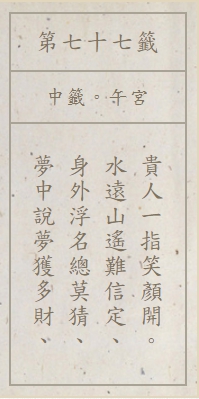 第七十七籤
中籤。午宮
夢中說夢獲多財、
身外浮名總莫猜、
水遠山遙難信定、
貴人一指笑顏開。